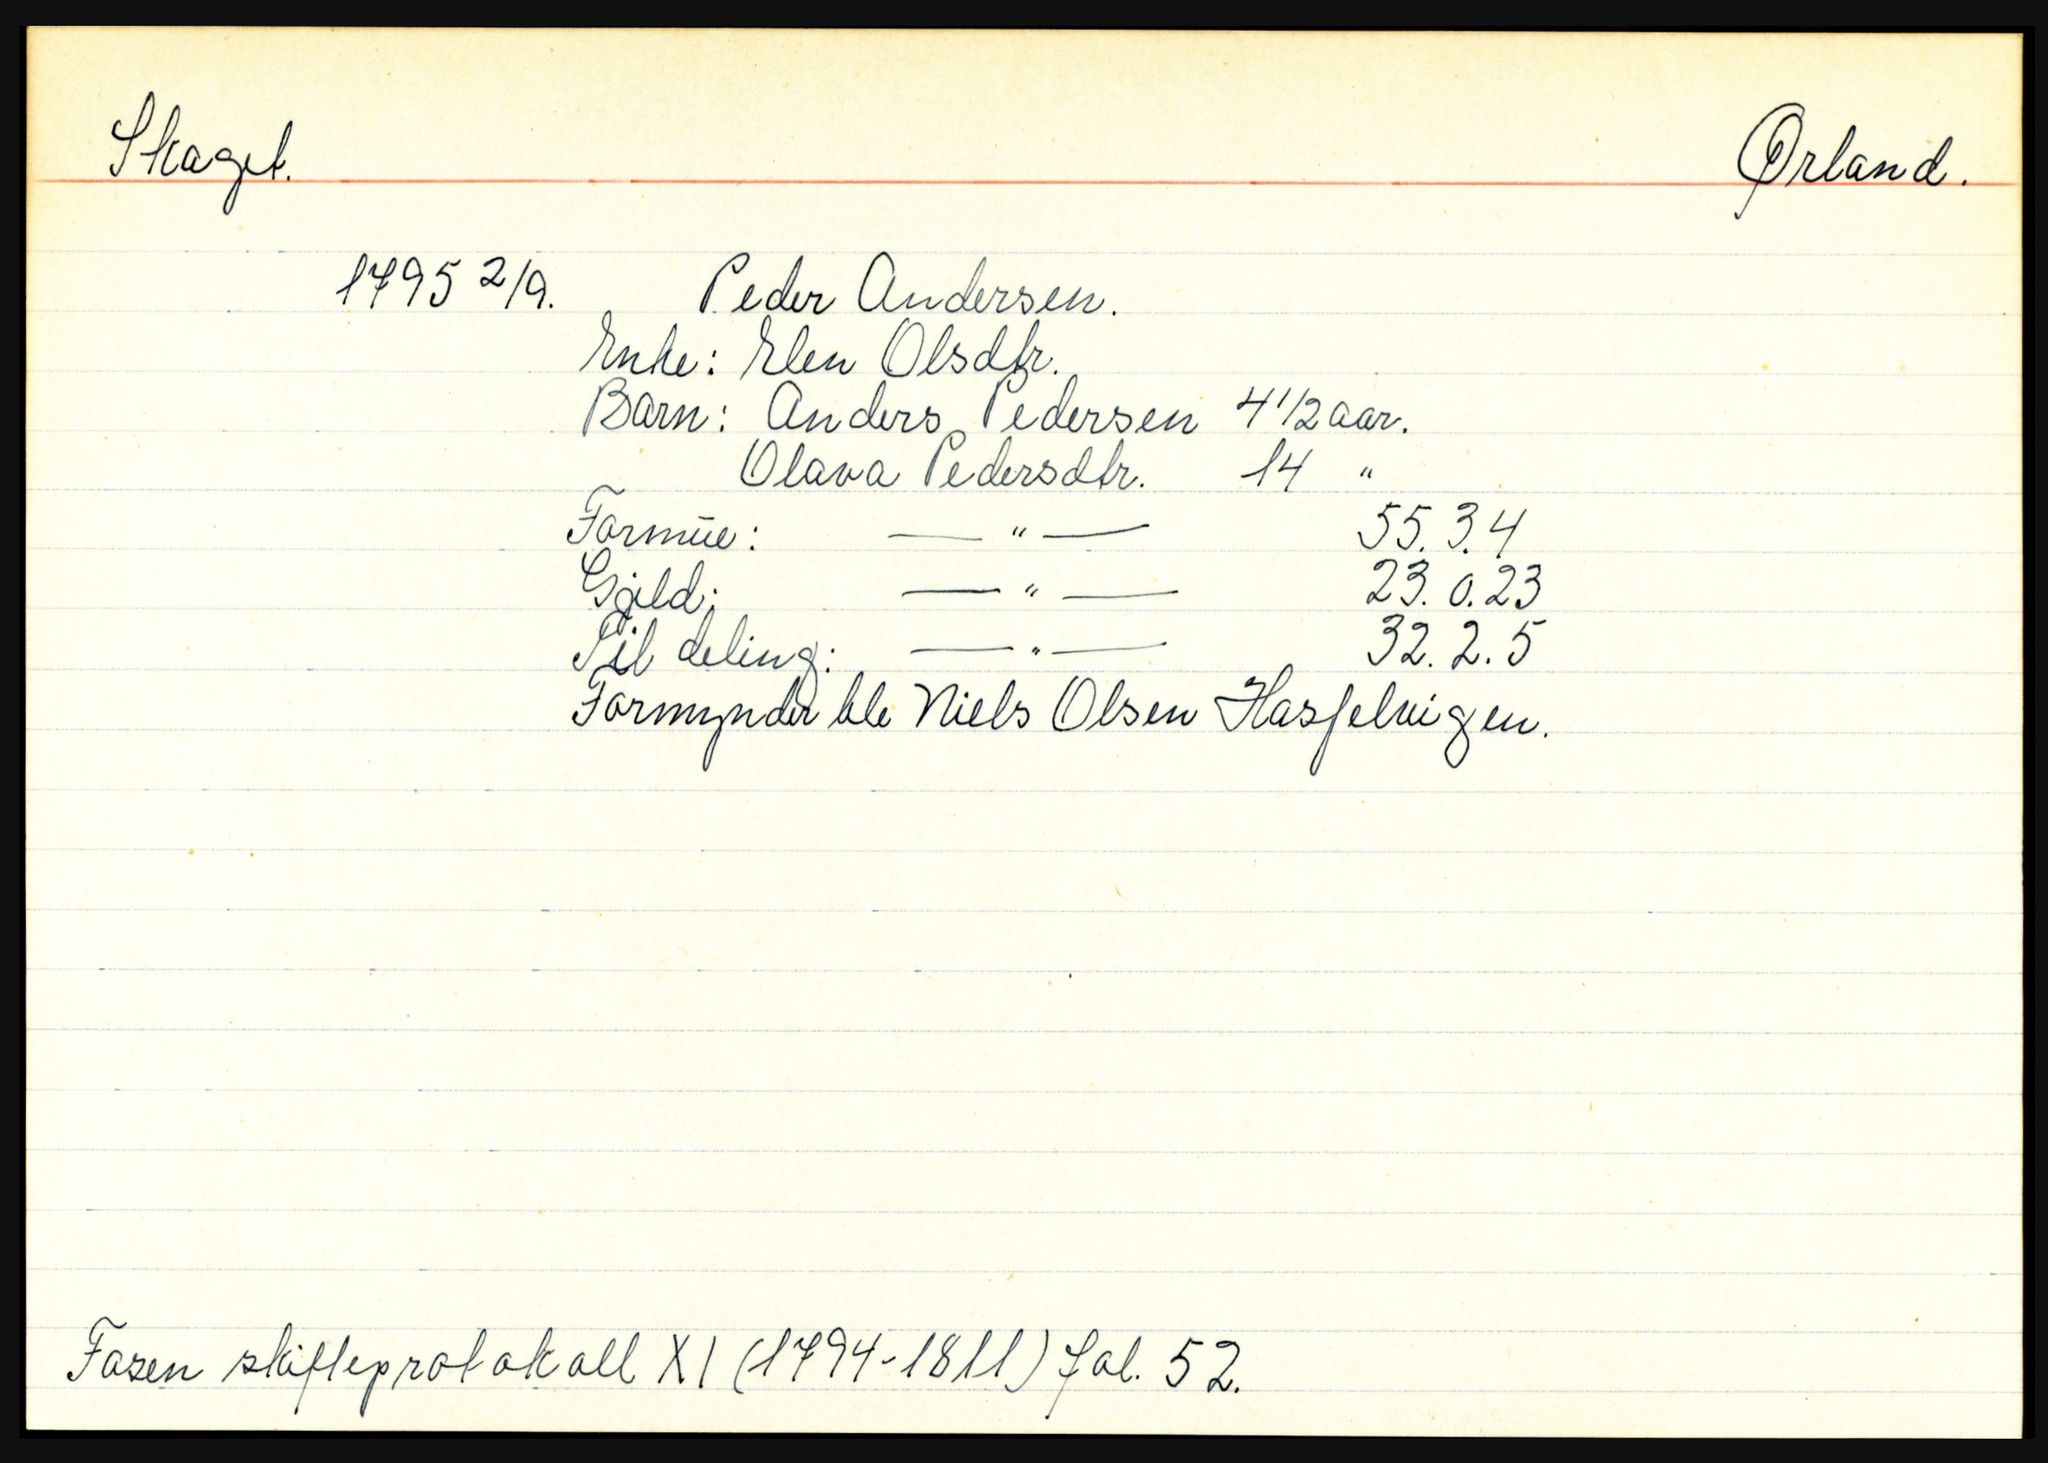 Skaget. Ørland.
1795 2/9. Peder Andersen.
Enke: Elen Olsdtr.
Barn: Anders Pedersen 4 1/2 aar.
Olava Pedersdtr. 14 "
Formūe: — " — 55. 3. 4
Gjeld: — " — 23. 0. 23
Til deling: — " — 32. 2. 5
Formynder ble Niels Olsen Hasselvigen.
Fosen skifteprotokoll XI (1794-1811) fol. 52.